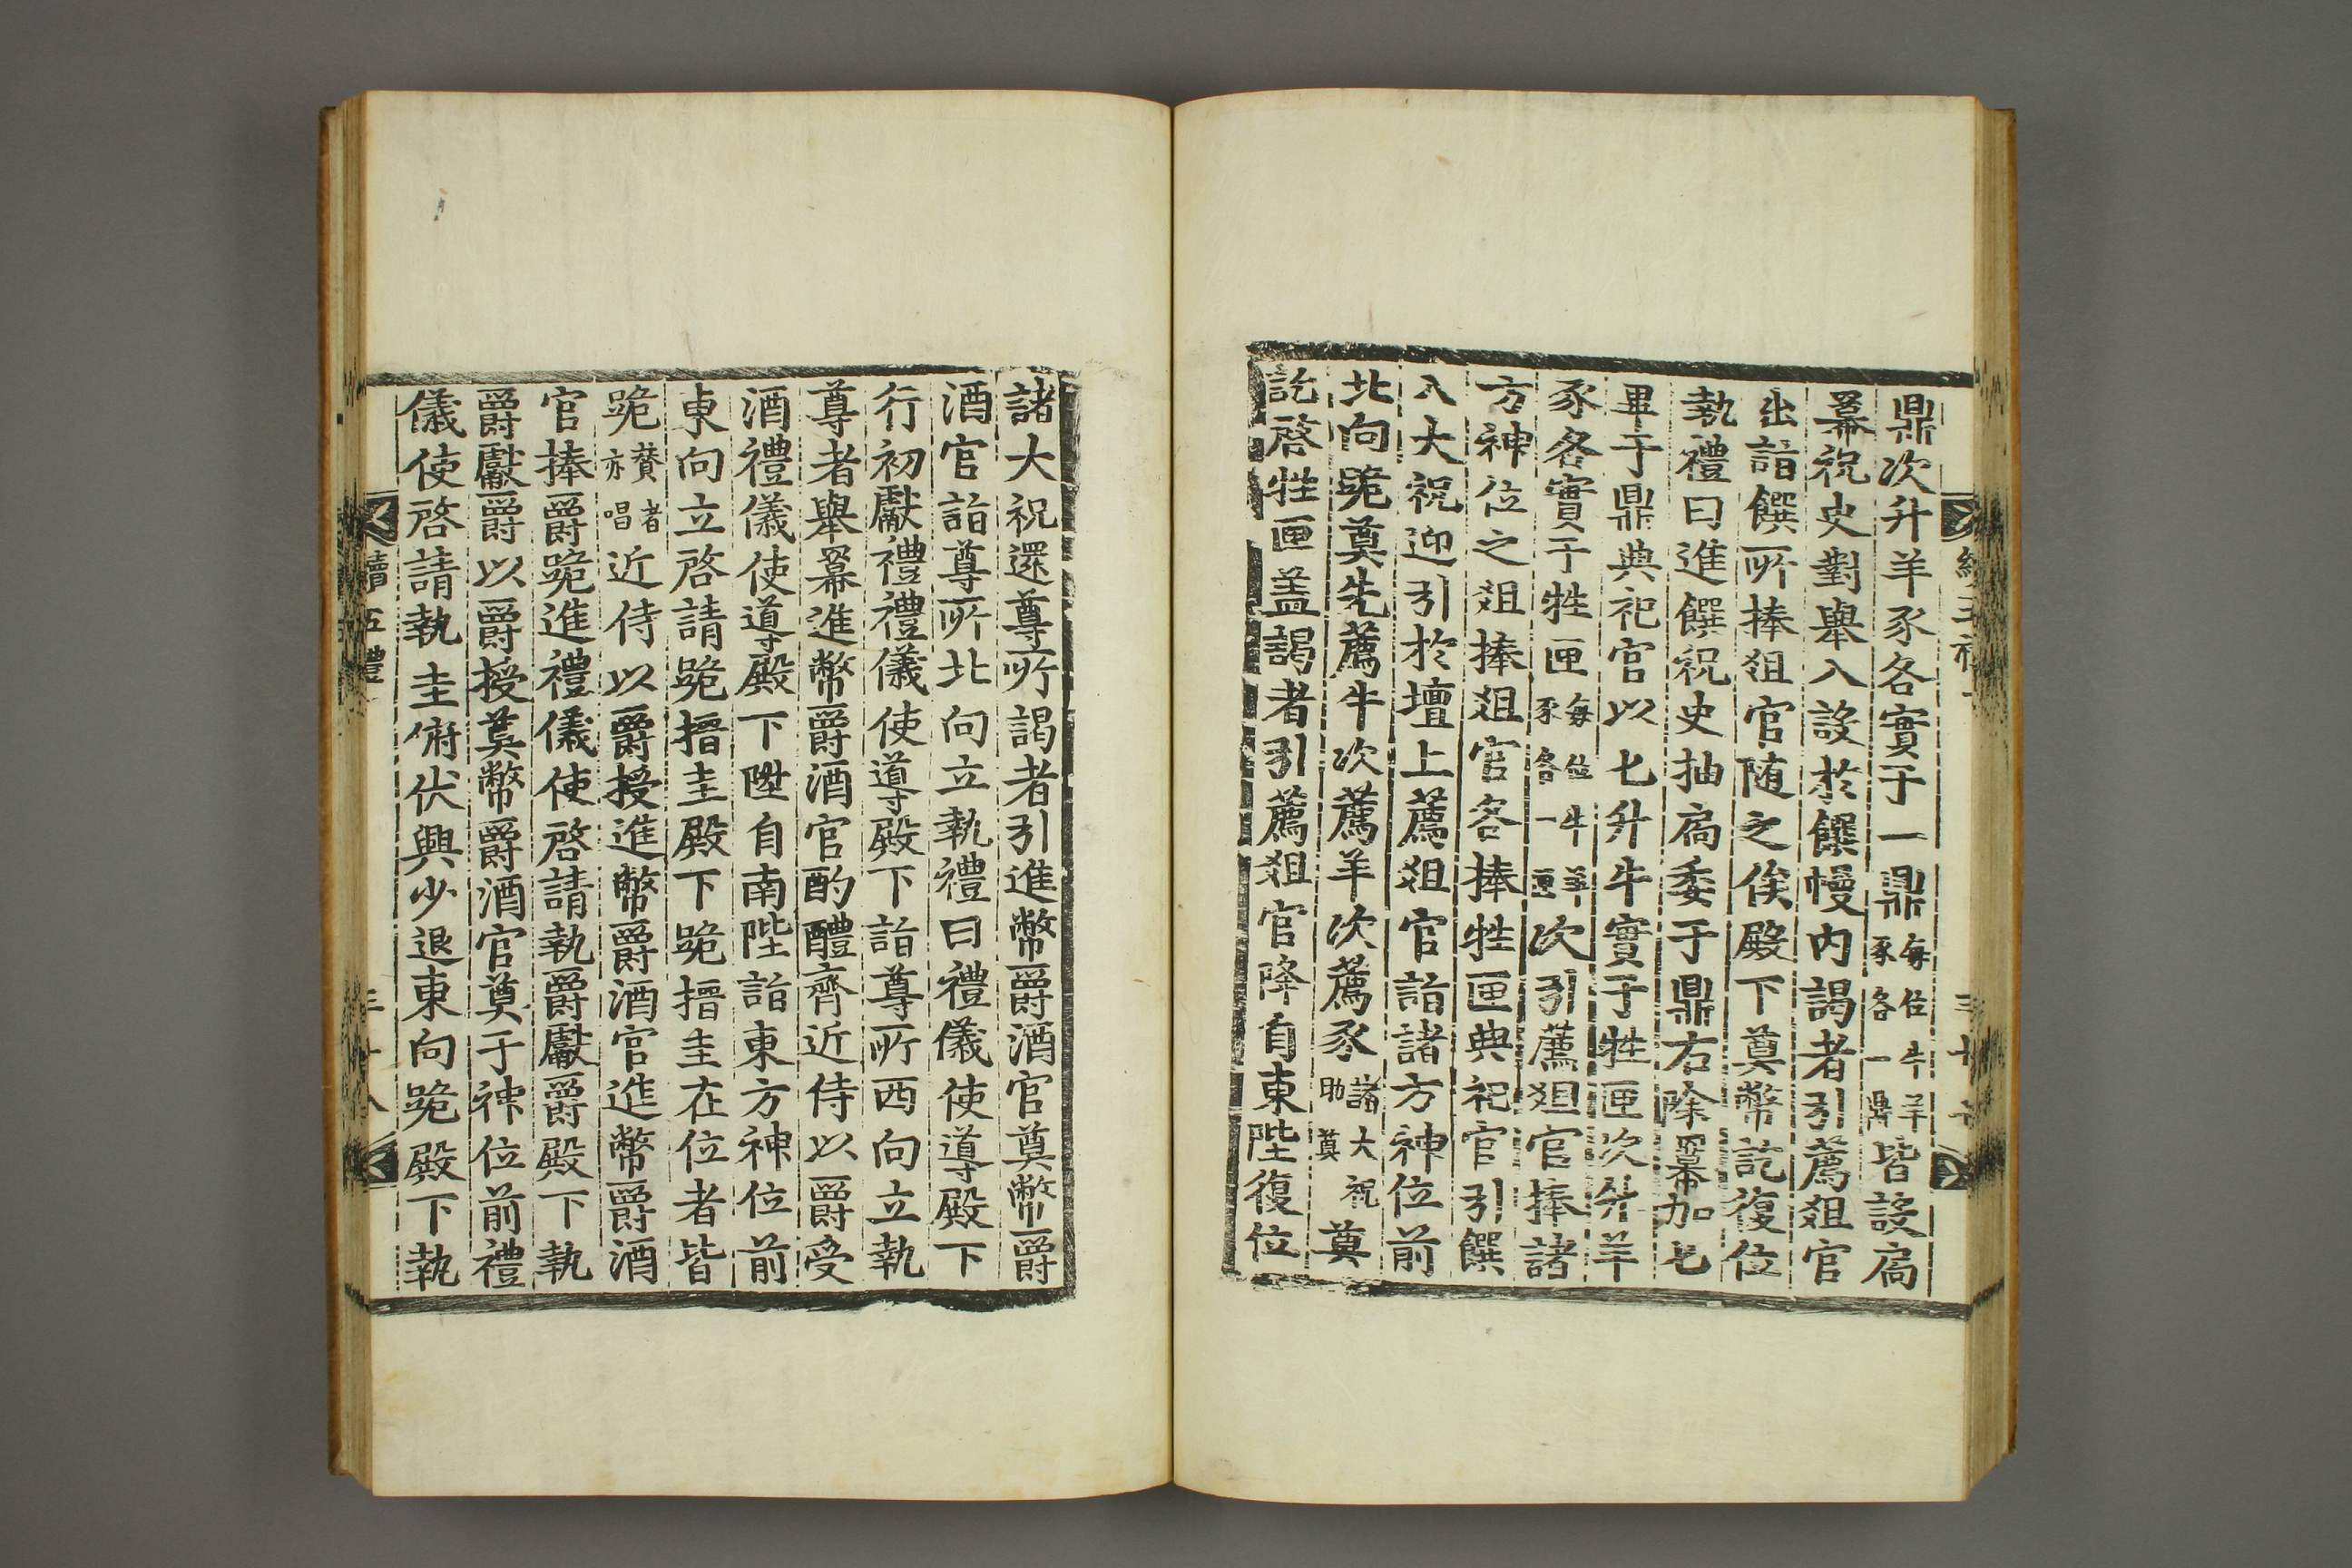 鼎次升羊豕各實于一鼎每位牛羊豕各一鼎皆設扃
冪祝史對舉入設於饌幔內謁者引薦俎官
出詣饌所捧俎官随之俟殿下奠幣訖復位
執禮曰進饌祝史抽扃委于鼎右除冪加匕
畢于鼎典祀官以匕升牛實于牲匣次升羊
豕各實于牲匣每位牛羊豕各一匣次引薦俎官捧諸
方神位之俎捧俎官各捧牲匣典祀官引饌
入大祝迎引於壇上薦俎官詣諸方神位前
北向跪奠先薦牛次薦羊次薦豕諸大祝助奠奠
訖啓牲匣盖謁者引薦俎官降自東陛復位
諸大祝還尊所謁者引進幣爵酒官奠幣爵
酒官詣尊所北向立執禮曰禮儀使導殿下
行初獻禮禮儀使導殿下詣尊所西向立執
尊者舉冪進幣爵酒官酌醴齊近侍以爵受
酒禮儀使導殿下陞自南陛詣東方神位前
東向立啓請跪搢圭殿下跪搢圭在位者皆
跪贊者亦唱近侍以爵授進幣爵酒官進幣爵酒
官捧爵跪進禮儀使啓請執爵獻爵殿下執
爵獻爵以爵授奠幣爵酒官奠于神位前禮
儀使啓請執圭俯伏興少退東向跪殿下執
續五禮
三十八